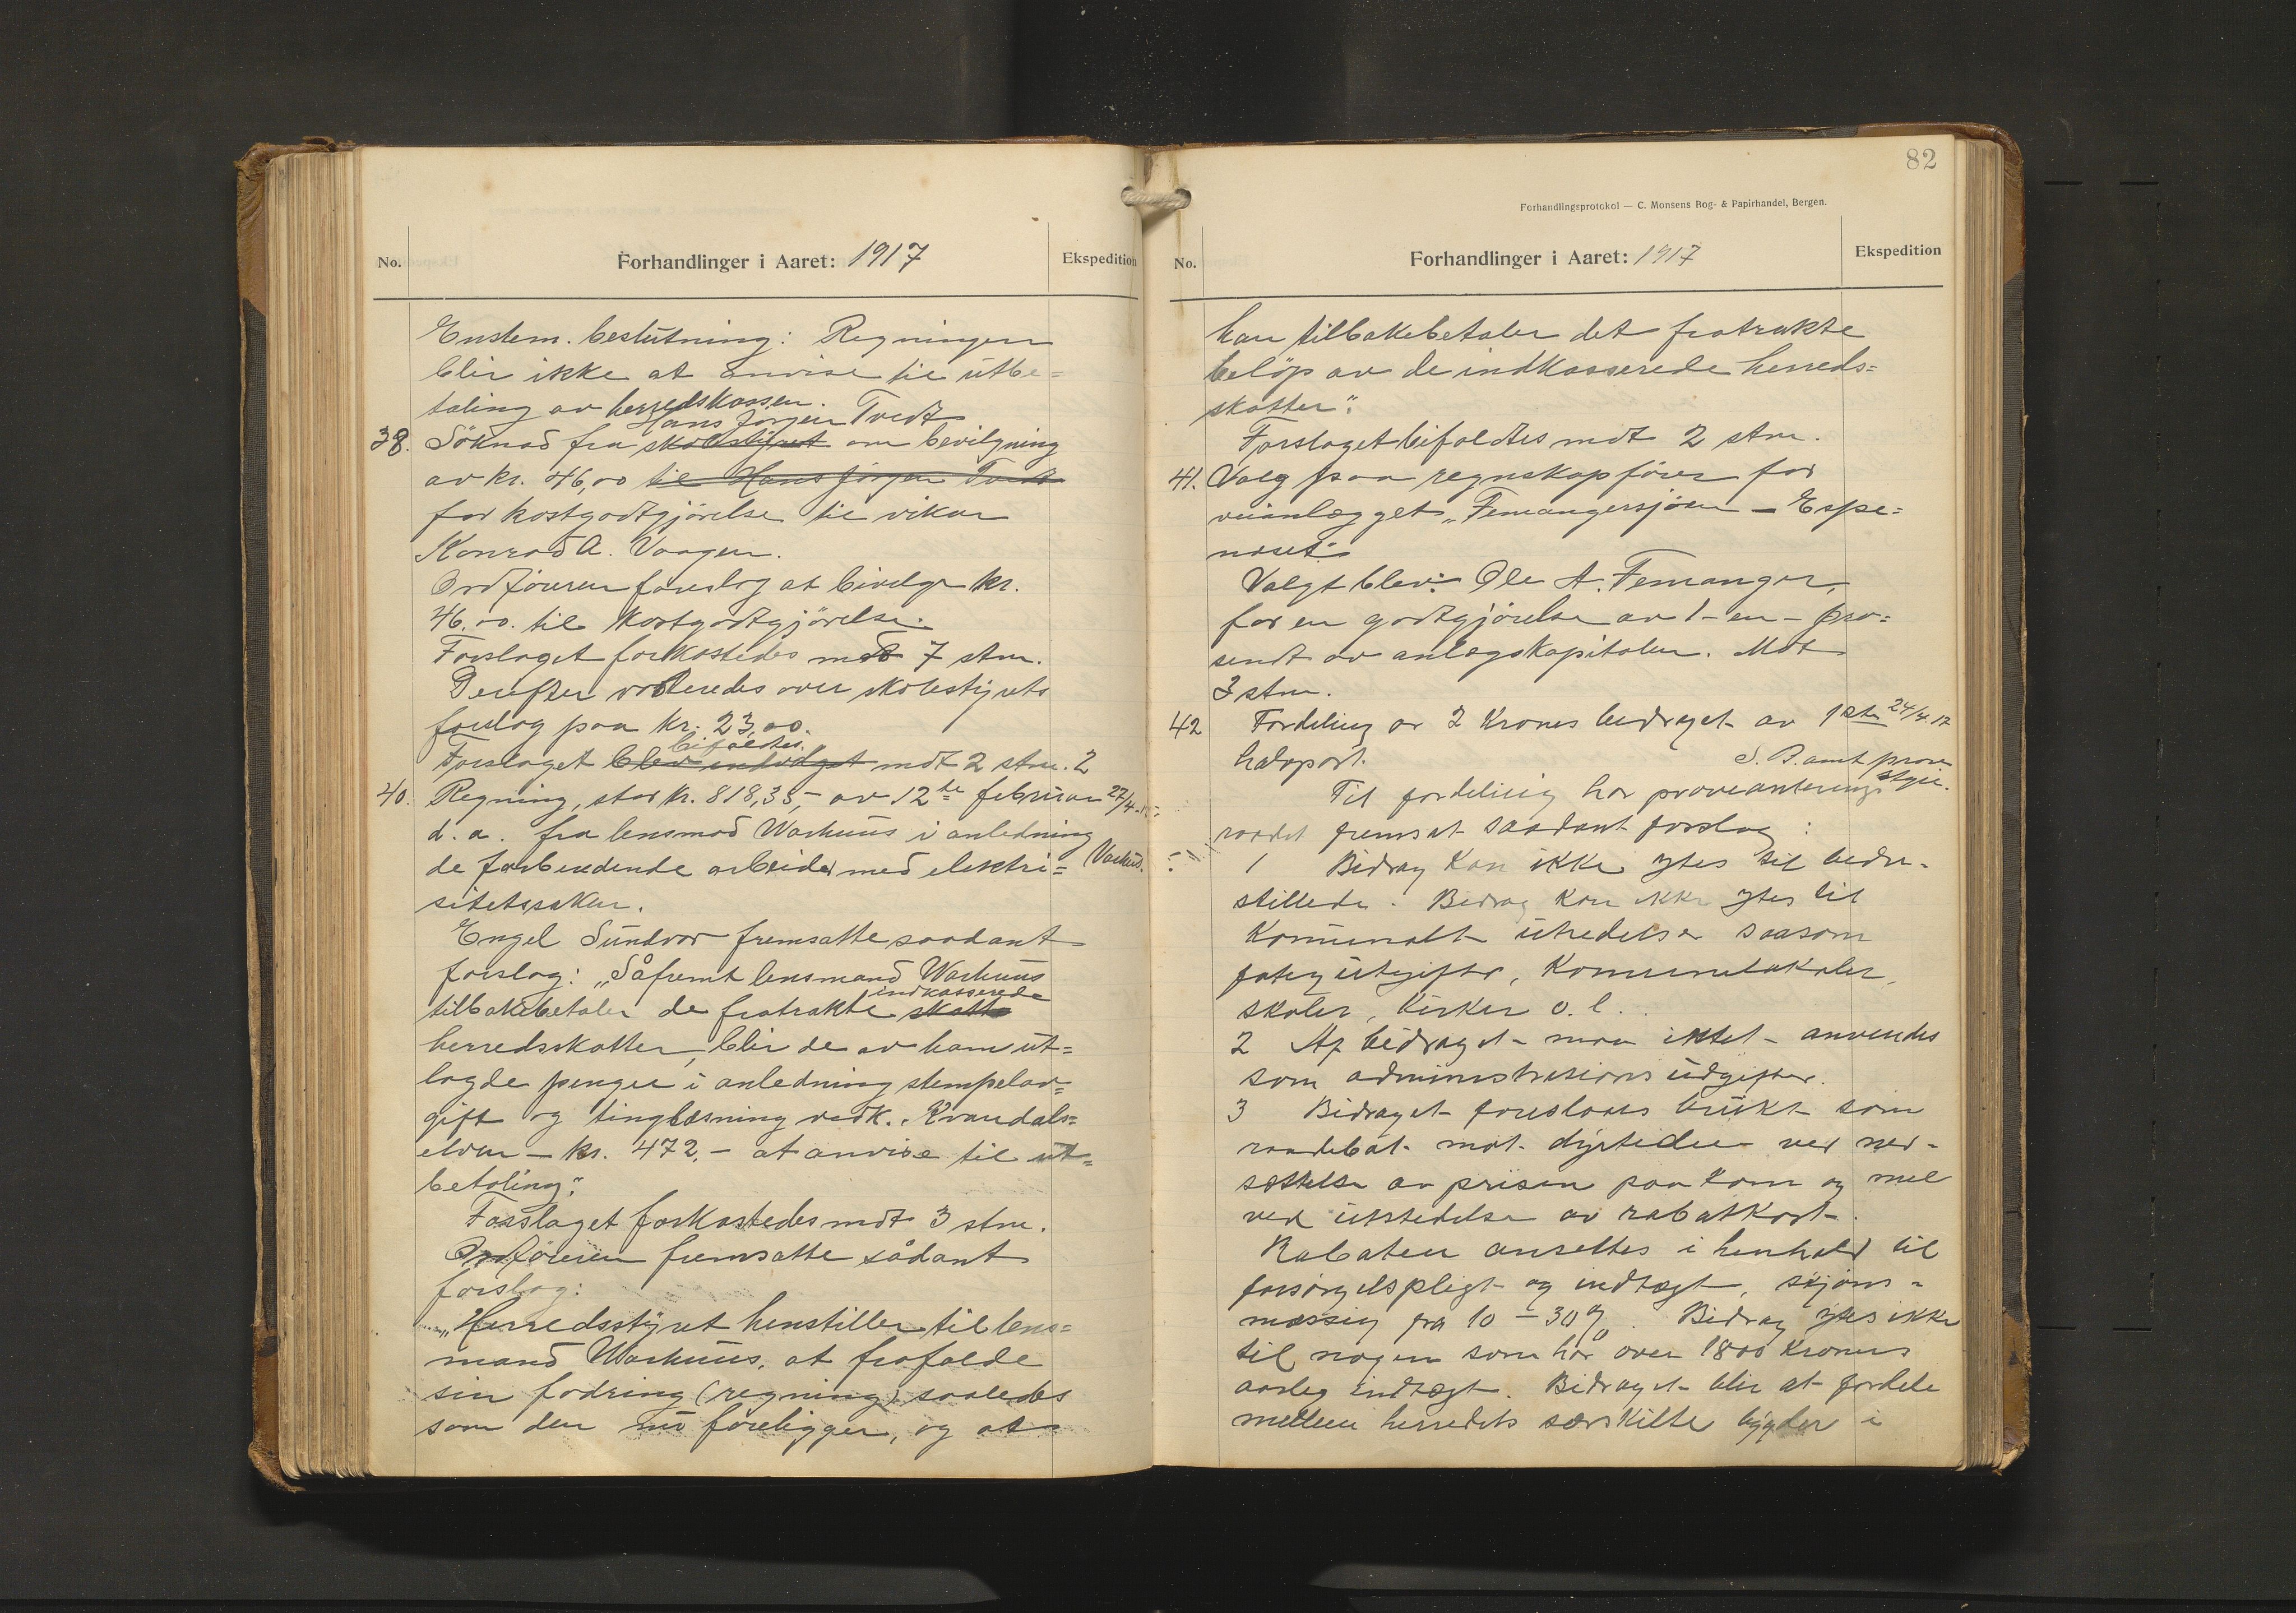 No.
Forhandlinger i Aaret: 1917
Ekspedition
Enstem. beslutning: Regningen
blir ikke at anvise til utbe=
taling av herredskassen.
Hans Jørgen Tvedt
38. Söknad fra skolestyret om bevilgning
av kr. 46,00 til Hans Jörgen Tvedt
for kostgodtgjörelse til vikar
Konrad A. Vaagen.
Ordföreren foreslog at bevilge kr.
46.00. til kostgodtgjörelse.
Forslaget forkastedes mot 7 stm.
Derefter voteredes over skolestyrets
forslag paa kr. 23,00.
bifaldtes.
Forslaget blev mot 2 stm. 2
40. Regning, stor kr. 818,35,- av 12te februar 27/4
d. a. fra lensmad Warhuus i anledning
de forberedende arbeider med elektri= Varhus.
sitetssaken.
Engel Sundvor fremsatte saadant
forslag: „Såfremt lensmand Warhuus
indkasserede
tilbakebetaler de fratrakte skatte
herredsskatter, blir de av ham ut=
lagde penger i anledning stempelav=
gift og tinglæsning vedk. Kvandals=
elven – kr. 472,- at anvise til ut=
betaling".
Forslaget forkastedes mot 3 stm.
Ordföreren fremsatte sådant
forslag:
„Herredsstyret henstiller til lens=
mand Warhuus, at frafalde
sin fodring (regning) saaledes
som den nu foreligger, og at
82
Forhandlingsprotokol — C. Monsens Rog- & Papirhandel, Bergen.
No.
Forhandlinger i Aaret: 1917
Ekspedition
han tilbakebetaler det fratrukte
belöp av de indkasserede herreds=
skatter".
Forslaget bifaldtes mot 2 stm.
41. Valg paa regnskapförer for
veianlægget „Femangersjöen – Espe=
neset"
Valgt blev: Ole A. Femanger,
for en godtgjörelse av 1-en- pro=
sendt av anlægskapitalen. Mot
3 stm.
42 Fordeling av 2 Krones bidraget av 1ste 24/4.17
halvpart. S. B. amt prov
styr.
Til fordeling har provianterings
raadet fremsat saadant forslag:
1 Bidrag kan ikke ytes til bedre-
stillede. Bedrag kan ikke ytes til
Komunalt utredelser saasom
fatigutgifter, Komunelokaler,
skoler, kirker o. l..
2 Af bidraget maa intet anvendes
som administrasions udgifter.
3 Bidraget foreslaaes brukt som
raadebot mot dyrtiden ved ned-
sættelse av prisen paa korn og mel
ved utstedelse av rabatkort.
Rabaten ansettes i henhold til
forsörgelspligt og indtægt, skjöns-
mæssig fra 10 – 30 %. Bidrag ytes ikke
til nogen som har over 1800 kroners
aarlig indtægt. Bidraget blir at fordele
mellem herredets særskilte bygder i